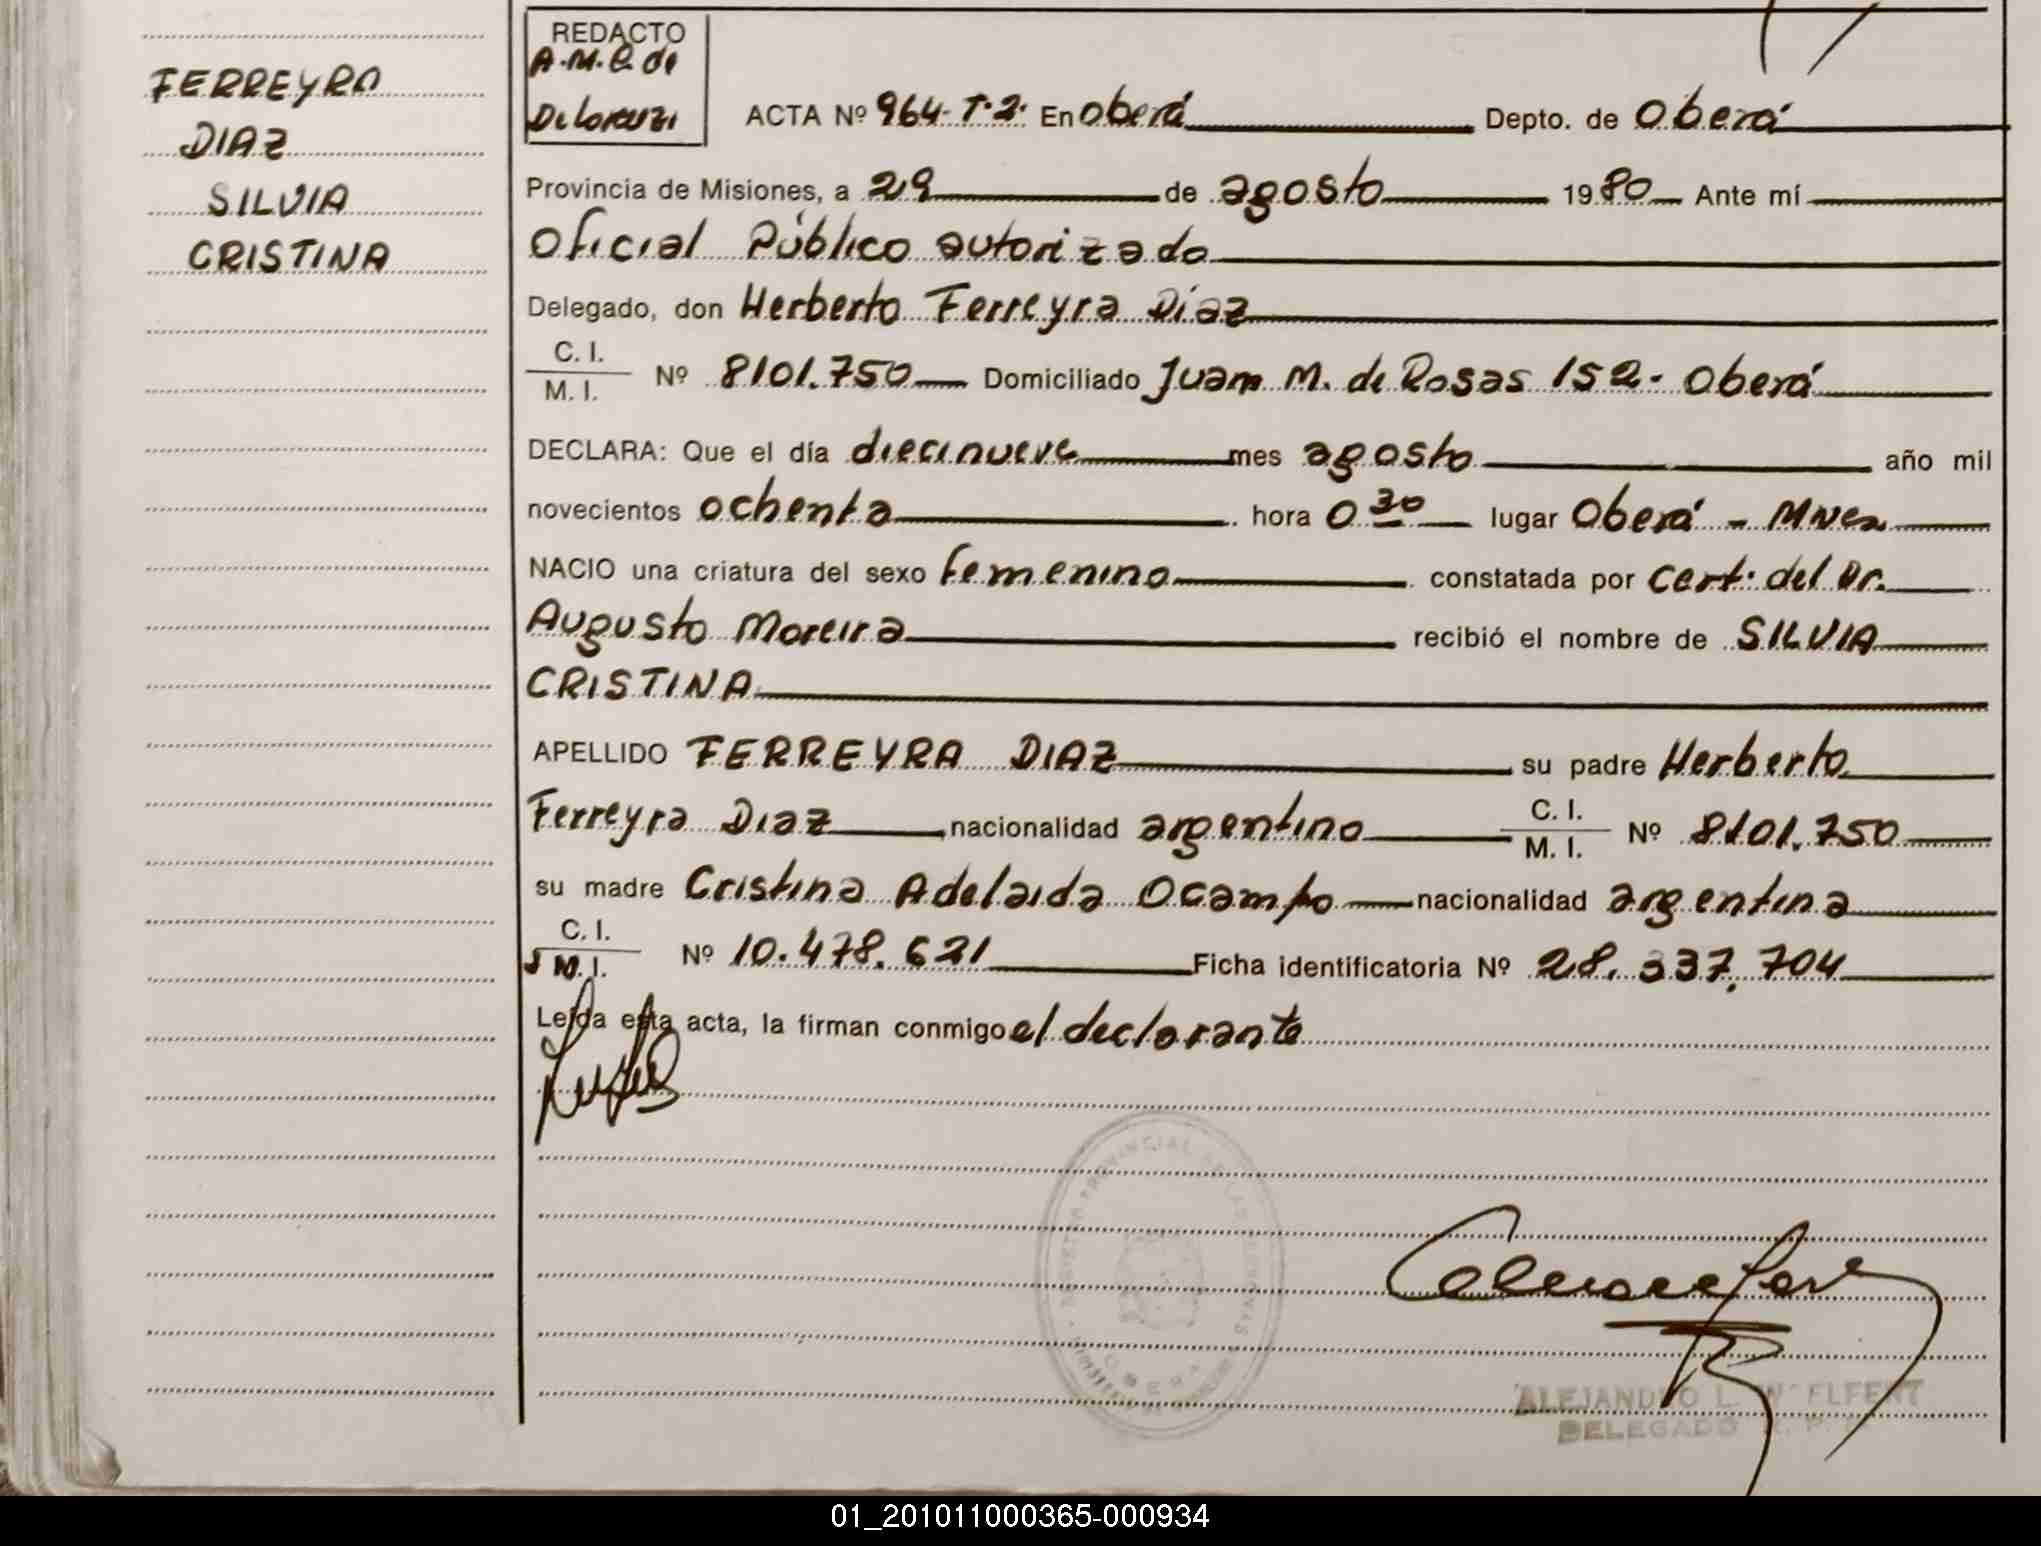 FERREYRA
DIAZ
SILVIA
CRISTINA
REDACTO
A.M.C. de
De Lorenzi
ACTA Nº 964-T.2. En Oberá Depto. de Oberá
Provincia de Misiones, a 29 de agosto 1980 Ante mí
Oficial Público autorizado
Delegado, don Herberto Ferreyra Díaz
C. I.
M. I. Nº 8101.750 Domiciliado Juan M. de Rosas 152- Oberá
DECLARA: Que el día diecinueve mes agosto año mil
novecientos ochenta hora 0 30 lugar Oberá - Mnes
NACIO una criatura del sexo femenino constatada por Cert. del Dr.
Augusto Moreira recibió el nombre de SILVIA
CRISTINA
APELLIDO FERREYRA DIAZ su padre Herberto
Ferreyra Diaz nacionalidad argentino C. I. M. I. Nº 8101.750
su madre Cristina Adelaida Ocampo nacionalidad argentina
C. I.
M. I. Nº 10.478.621 Ficha identificatoria Nº 28.337.704
Leída esta acta, la firman conmigo el declarante
REGISTRO PROVINCIAL DE LAS PERSONAS
OBERA
ALEJANDRO L.
DELEGADO
01_201011000365-000934